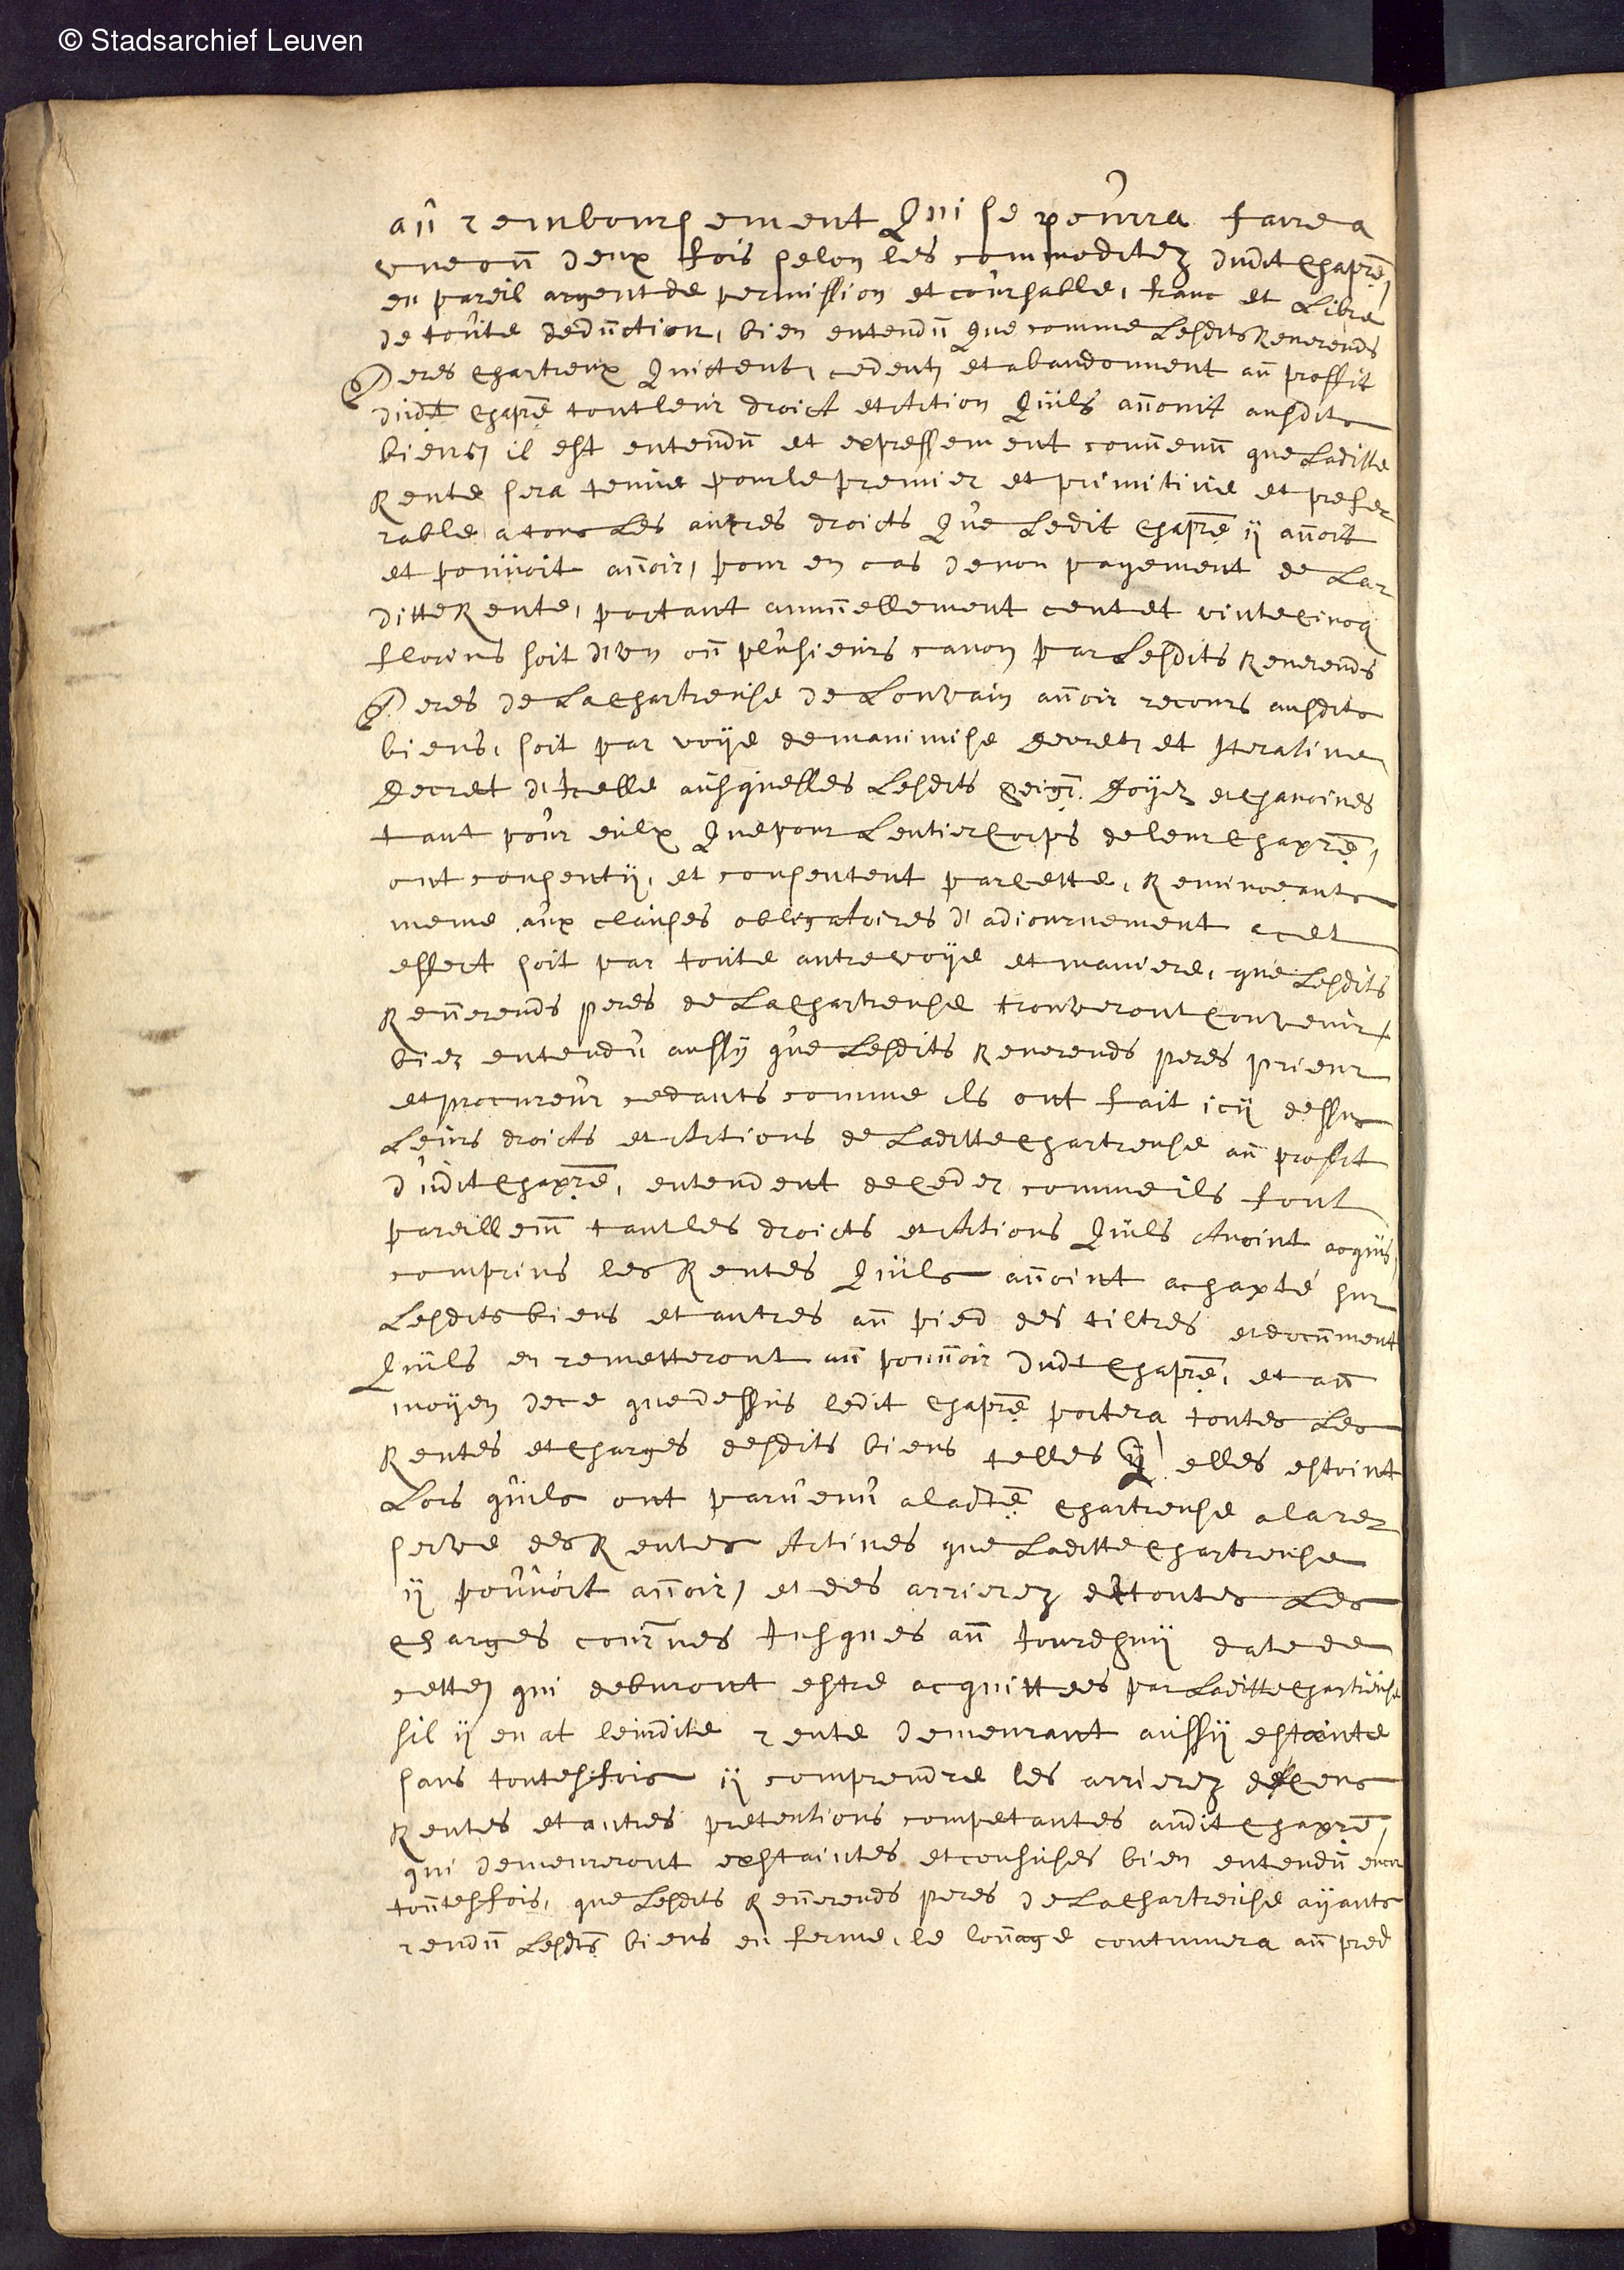 © Stadsarchief Leuven
au remboursement Qui se pourra faire a
une ou deux fois selon les commoditez dudit Chapre,
en pareil argent de permission et coursable, franc et Libre
de toute deduction, bien entendu Que comme Lesdits Reverends
Peres Chartreux Quictent, cedent, et abandonnent au proffit
dudt Chapre tout leur droict et Action Quils auont ausdits
biens, il est entendu et expressement conuenu que Laditte
Rente sera tenue pour le premier et primitiue et prefer
rable a tous Les autres droicts Que Ledit Chapre ij auoit
et pouuoit auoir, pour en cas de non payement de La
ditte Rente, portant annuellement cent et vinte Cincq
florins soit d'un ou plusieurs canon par Lesdits Reverends
Peres de La Chartreuse de Louvain auoir recours ausdits
biens, soit par voije de manimise Decret, et Iteratiue
Decret d'Icelle ausquelles Lesdits Seigrs. Doijen et Chanoines
tant pour eulx Que pour Lentier Corps de leur Chapre,
ont consentij, et consentent par Cette, Renunceants
meme aux clauses obligatoires d'adiournement a cet
effect soit par toute autre voije et maniere, que Lesdits
Reuerends peres de La Chartreuse trouveront Convenir,
bien entendu aussij que Lesdits Reverends peres prieur
et procureur cedants comme ils ont fait icij dessus
Leurs droicts et Actions de Laditte Chartreuse au proffit
dudit Chapre, entendent de Ceder comme ils font
pareillemt tant les droicts et Actions Quils Avoint acquis,
comprins les Rentes Quils auoint achapté sur
Lesdits biens et autres au pied des tiltres et document
Quils en remetteront au pouuoir dudt Chapre, et au
moijen de ce que dessus ledit Chapre portera toutes Les
Rentes et Charges desdits biens telles q' elles estoint
Lors quils ont paruenu a ladte Chartreuse a la re
serve des Rentes Actiues que Laditte Chartreuse
ij pouuoit auoir, et des arrierez de toutes Les
Charges courues Iusques au Iourdhuij date de
cette, qui deburont estre acquittees par Laditte Chartreuse
sil ij en at leurdite rente demeurant aussij estainte
sans toutesfois ij comprendre les arrierez des Cens
Rentes et autres pretentions competantes audit Chapre,
qui demeureront exstaintes et confuses bien entendu encor
toutesfois, que Lesdits Reuerends peres de La Chartreuse aijants
rendu Lesdts biens en ferme, le louage continuera au pred